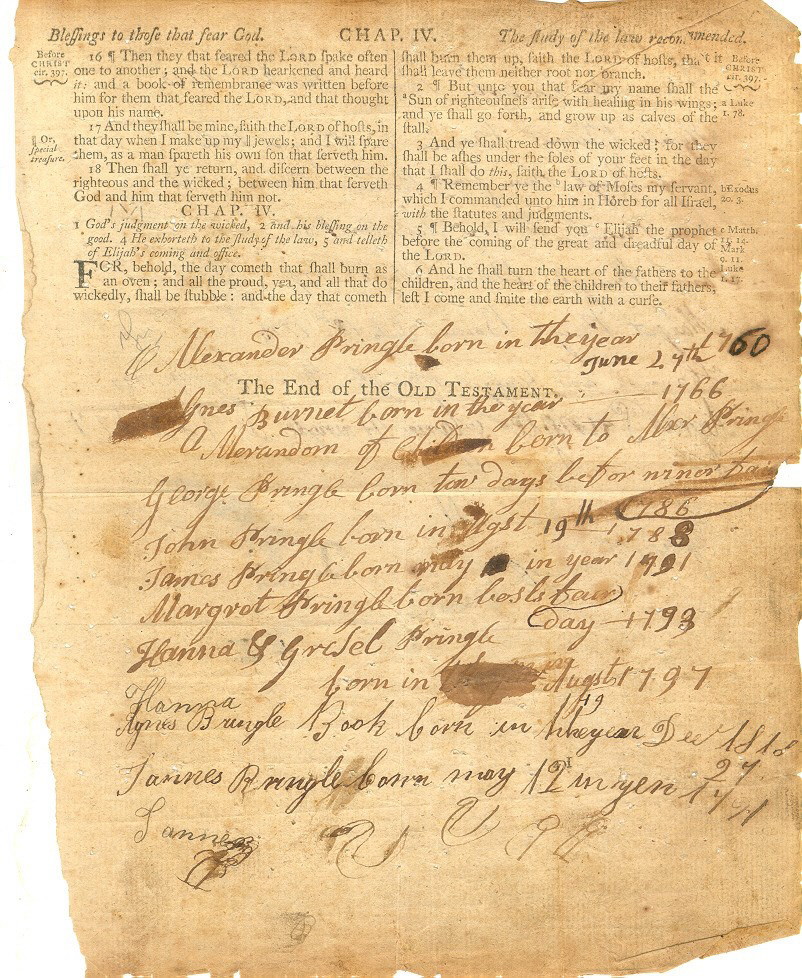 Blessings to those that fear God.
CHAP. IV.
The study of the law recommended.
Before
CHRIST
cir. 397.
16 ¶ Then they that feared the LORD spake often
one to another; and the LORD hearkened and heard
it: and a book of remembrance was written before
him for them that feared the LORD, and that thought
upon his name.
¶ Or,
special
treasure.
17 And they shall be mine, saith the LORD of hosts, in
that day when I make up my ‖ jewels; and I will spare
them, as a man spareth his own son that serveth him.
18 Then shall ye return, and discern between the
righteous and the wicked; between him that serveth
God and him that serveth him not.
CHAP. IV.
1 God's judgment on the wicked, 2 and his blessing on the
good. 4 He exhorteth to the study of the law, 5 and telleth
of Elijah's coming and office.
FOR, behold, the day cometh that shall burn as
an oven; and all the proud, yea, and all that do
wickedly, shall be stubble: and the day that cometh
shall burn them up, saith the LORD of hosts, that it
shall leave them neither root nor branch.
2 ¶ But unto you that fear my name shall the
a Sun of righteousness arise with healing in his wings;
and ye shall go forth, and grow up as calves of the
stall.
3 And ye shall tread down the wicked; for they
shall be ashes under the soles of your feet in the day
that I shall do this, saith the LORD of hosts.
4 ¶ Remember ye the b law of Moses my servant,
which I commanded unto him in Horeb for all Israel,
with the statutes and judgments.
5 ¶ Behold, I will send you c Elijah the prophet
before the coming of the great and dreadful day of
the LORD.
6 And he shall turn the heart of the fathers to the
children, and the heart of the children to their fathers,
lest I come and smite the earth with a curse.
Before
CHRIST
cir. 397.
a Luke
1. 78.
b Exodus
20. 3.
c Matth.
11. 14.
Mark
9. 11.
Luke
1. 17.
Alexander Pringle born in the year 1760
June 27th
The End of the OLD TESTAMENT.
Agnes Burnet born in the year 1766
A Merandom of born to Alxr Pringle
George Pringle born tow days befor
1786
John Pringle born in Agst 19th 1788
James Pringle born may in year 1791
Margrot Pringle born fair
day 1793
Hanna & Grisel Pringle
born in Augst 1797
19
Hanna
Agnes Pringle Book born in the year Decr 1818
27
Jannes Pringle born may 12 in yen 1791
Jannes